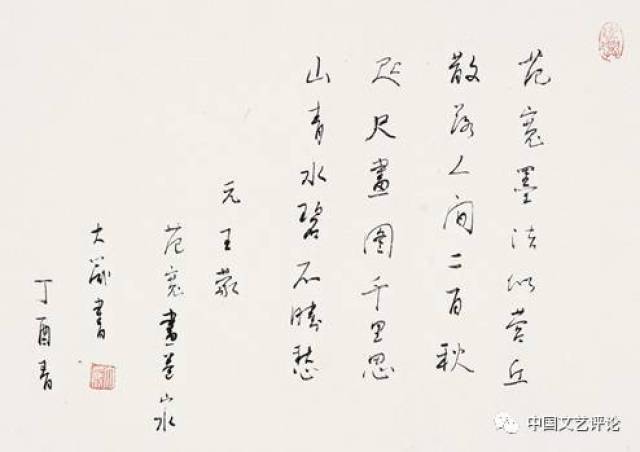 范宽墨法似营丘
散落人间二百秋
咫尺畫图千里思
山青水碧不勝愁
元王蒙
范宽畫卷山水
大箴書
丁酉春
中国文艺评论